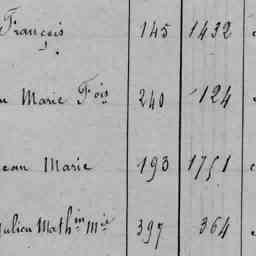 François 145 1432
Marie Fois 240 124
Jean Marie 193 1751
Julien Mathin Mie 397 364